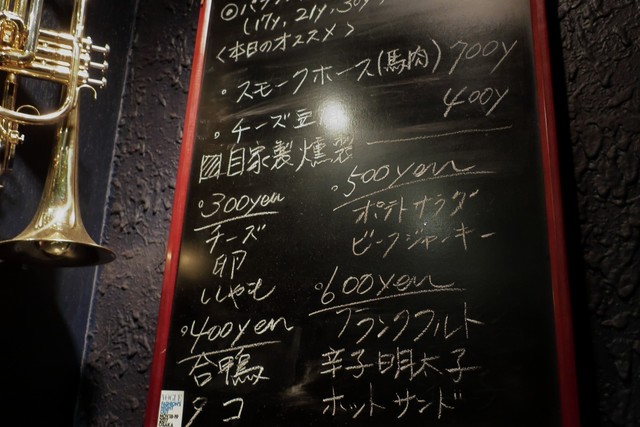 (17y, 21y, 30y
<本日のオススメ>
・スモークホース(馬肉) 700y
・チーズ豆 400y
自家製燻製
・300yen
チーズ
卵
ししゃも
・400yen
合鴨
タコ
・500yen
ポテトサラダ
ビーフジャーキー
・600yen
フランクフルト
辛子明太子
ホットサンド
VOGUE